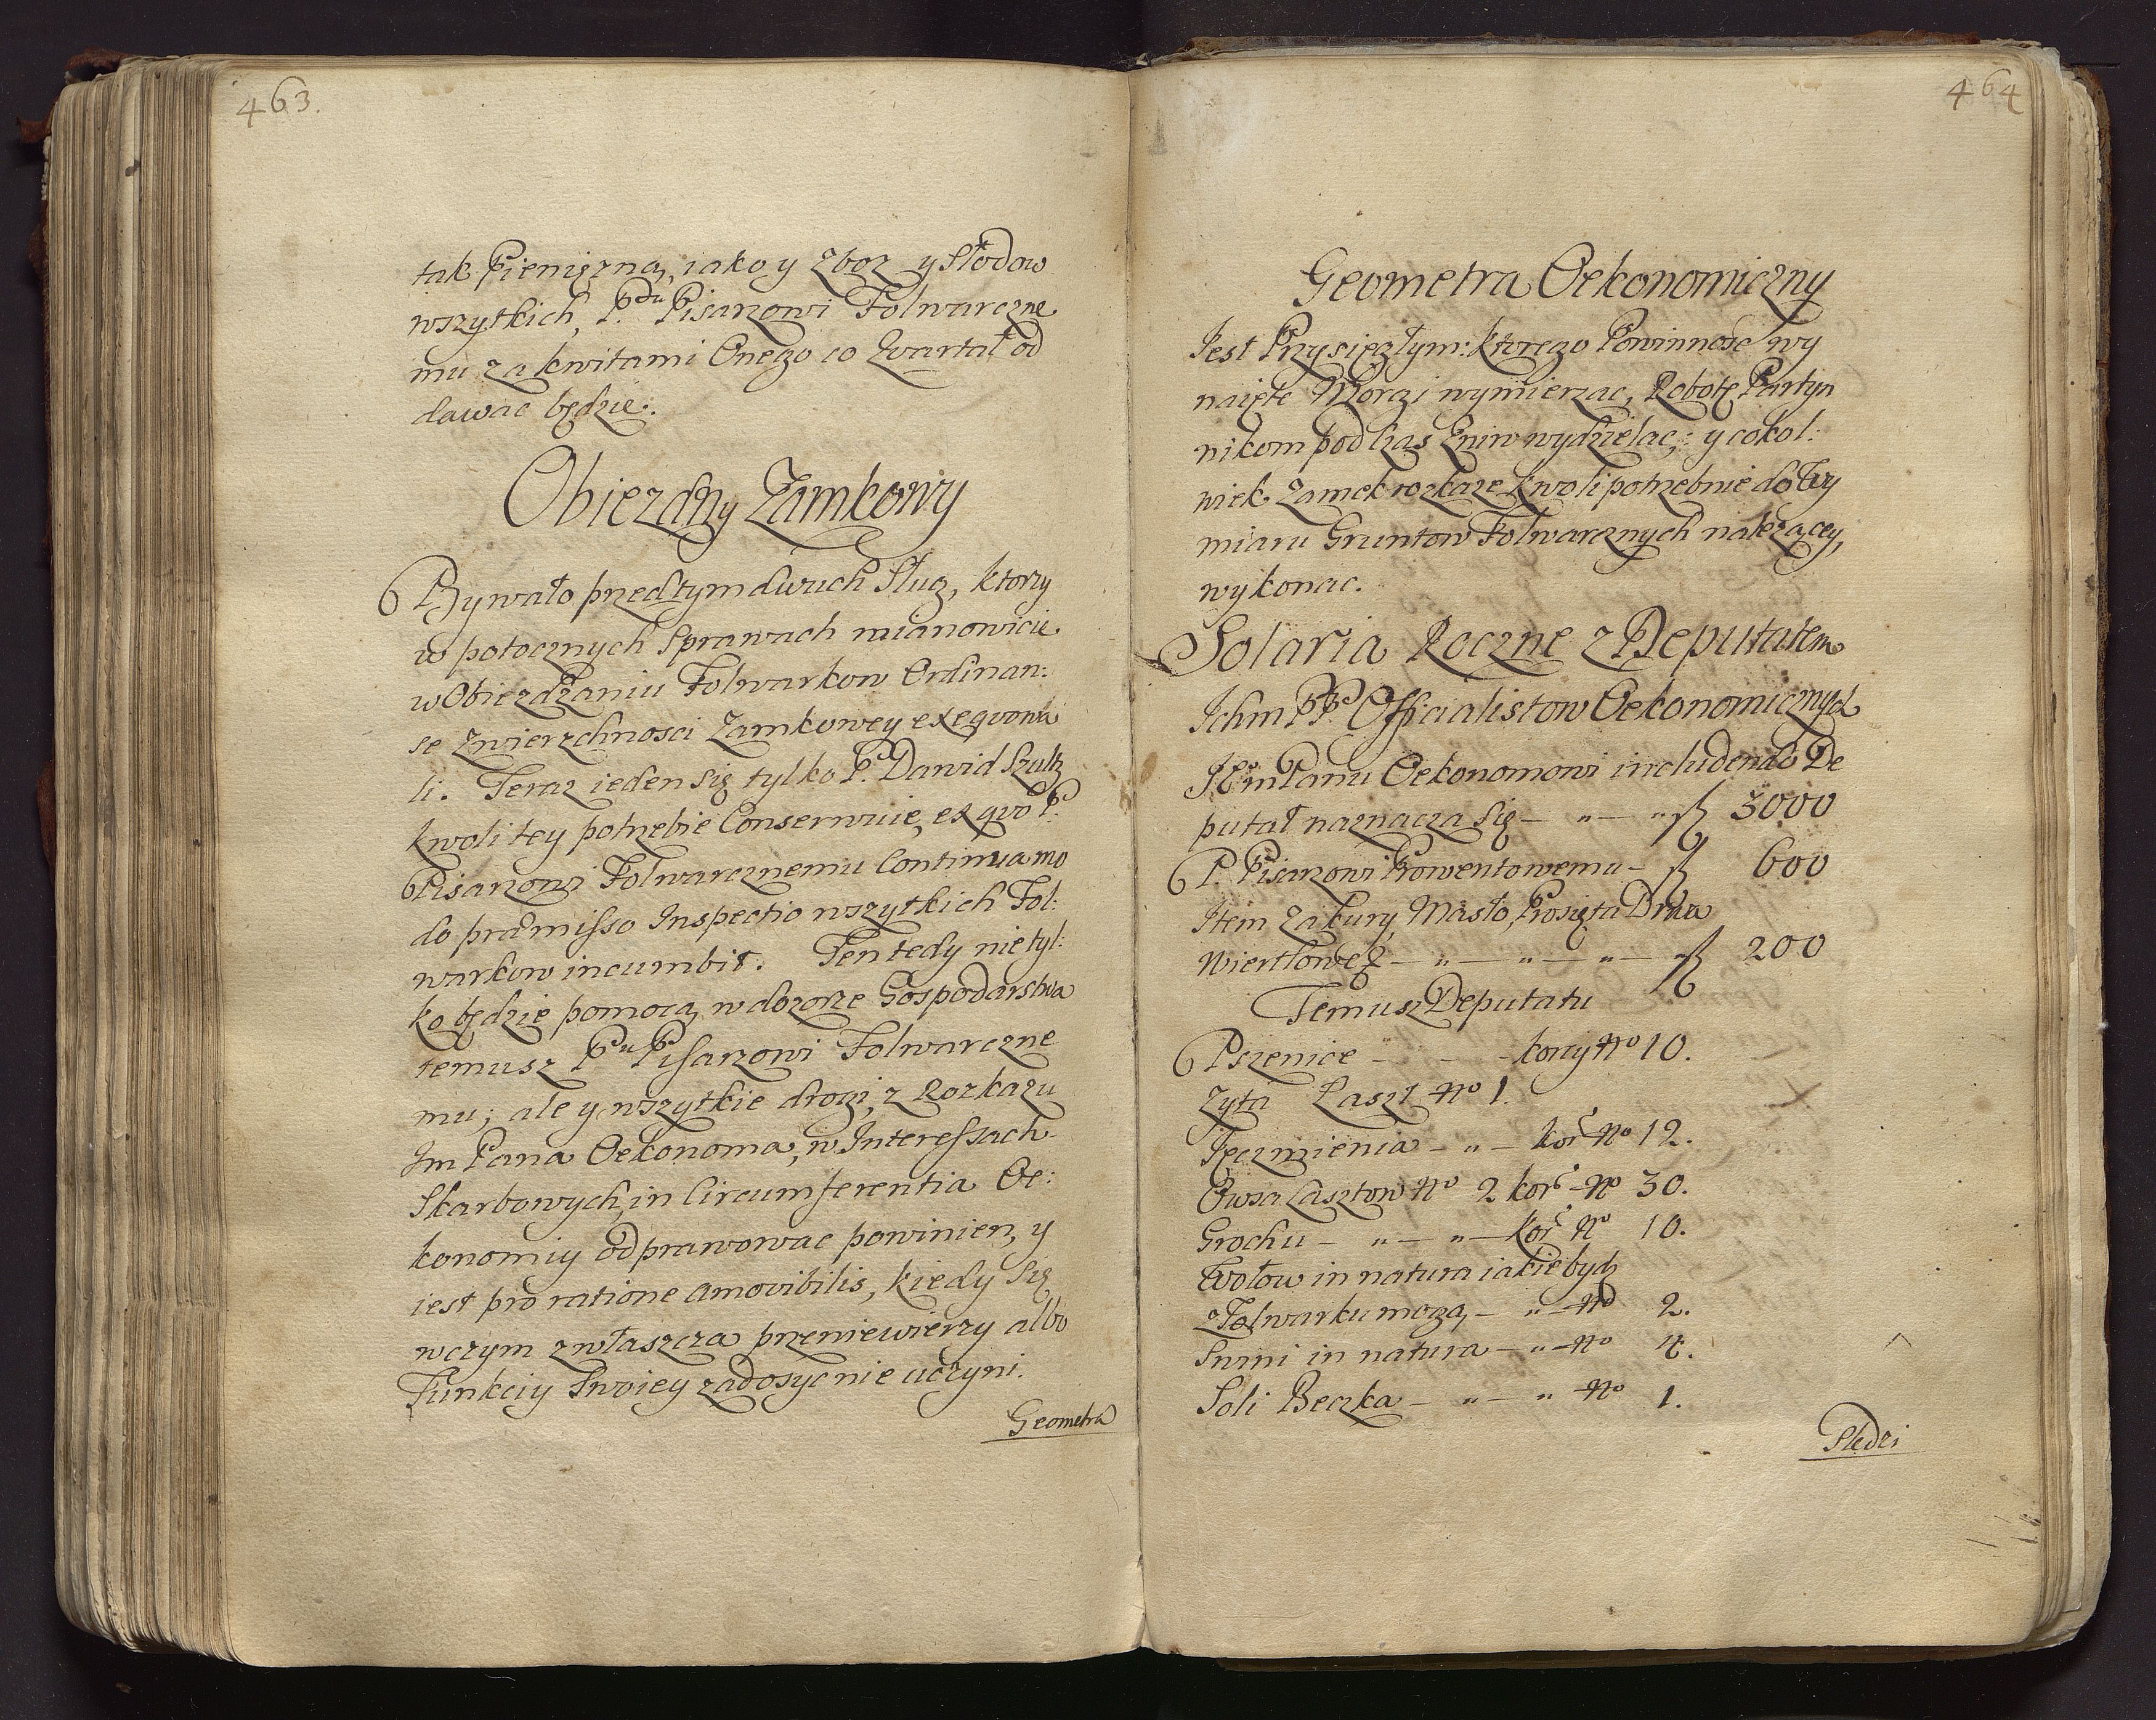 463.
tak Pieniężną, iako y Zboz y Słodow
wszytkich, P. Pisarzowi Folwarczne
mu za kwitami Onego co Kwartał od
dawac będzie.
Obiezdny Zamkowy
Bywało przedtym dwuch Sług, ktorzy
w potocznych Sprawach mianowicie
w Obiezdżaniu Folwarkow Ordinan:
se Zwierzchnosci Zamkowey exeqvowa
li. Teraz ieden się tylko P. Dawid Szultz
kwoli tey potrzebie Conserwuie, ex qvo P.
Pisarzowi Folwarcznemu Continuamo
do præmisso Inspectio wszytkich Fol:
warkow incumbit. Ten tedy nie tyl:
ko będzie pomocą w dozorze Gospodarstwa
temusz Pu Pisarzowi Folwarczne
mu; ale y wszytkie drogi, z Rozkazu
Im Pana Oekonoma, w Interessach
Skarbowych, in Circumferentia Oe:
konomiy odprawowac powinien, y
iest pro ratione amovibilis, kiedy Się
wczym zwłaszcza przeniewierzy albo
Funkciy Swoiey zadosyc nie uczyni.
Geometra
464
Geometra Oekonomiczny
Jest Przysięgłym: ktorego Powinnosc wy
naięte Morgi wymierzac, Robotę Partyn
nikom podczas Zniw wydzielac; y cokol:
wiek Zamek rozkaze kwoli potrzebnie do Wy
miaru Gruntow Folwarcznych nalezącey,
wykonac.
Solaria Roczne z Deputatem
Ichm PP. Officialistow Oekonomicznych
JEm Panu Oekonomowi includendo De
putat naznacza Się — " — " fl 3000
P. Pisarzowi Prowentowemu — fl 600
Item Za kury, Masło, Prosięta Drwa
Wiertlowe — " — " — " — fl 200
Temusz Deputatu
Pszenice - - - korcy No 10.
Zyta Laszt No 1.
Jęczmienia — " — kor No 12.
Owsa Lasztow No 2 kor No 30.
Grochu — " — " — kor No 10.
Wołow in natura iakie bydz
z Folwarku mogą, — " — No 2.
Swini in natura — " — No 4.
Soli Beczka — " — " No 1.
Sledzi